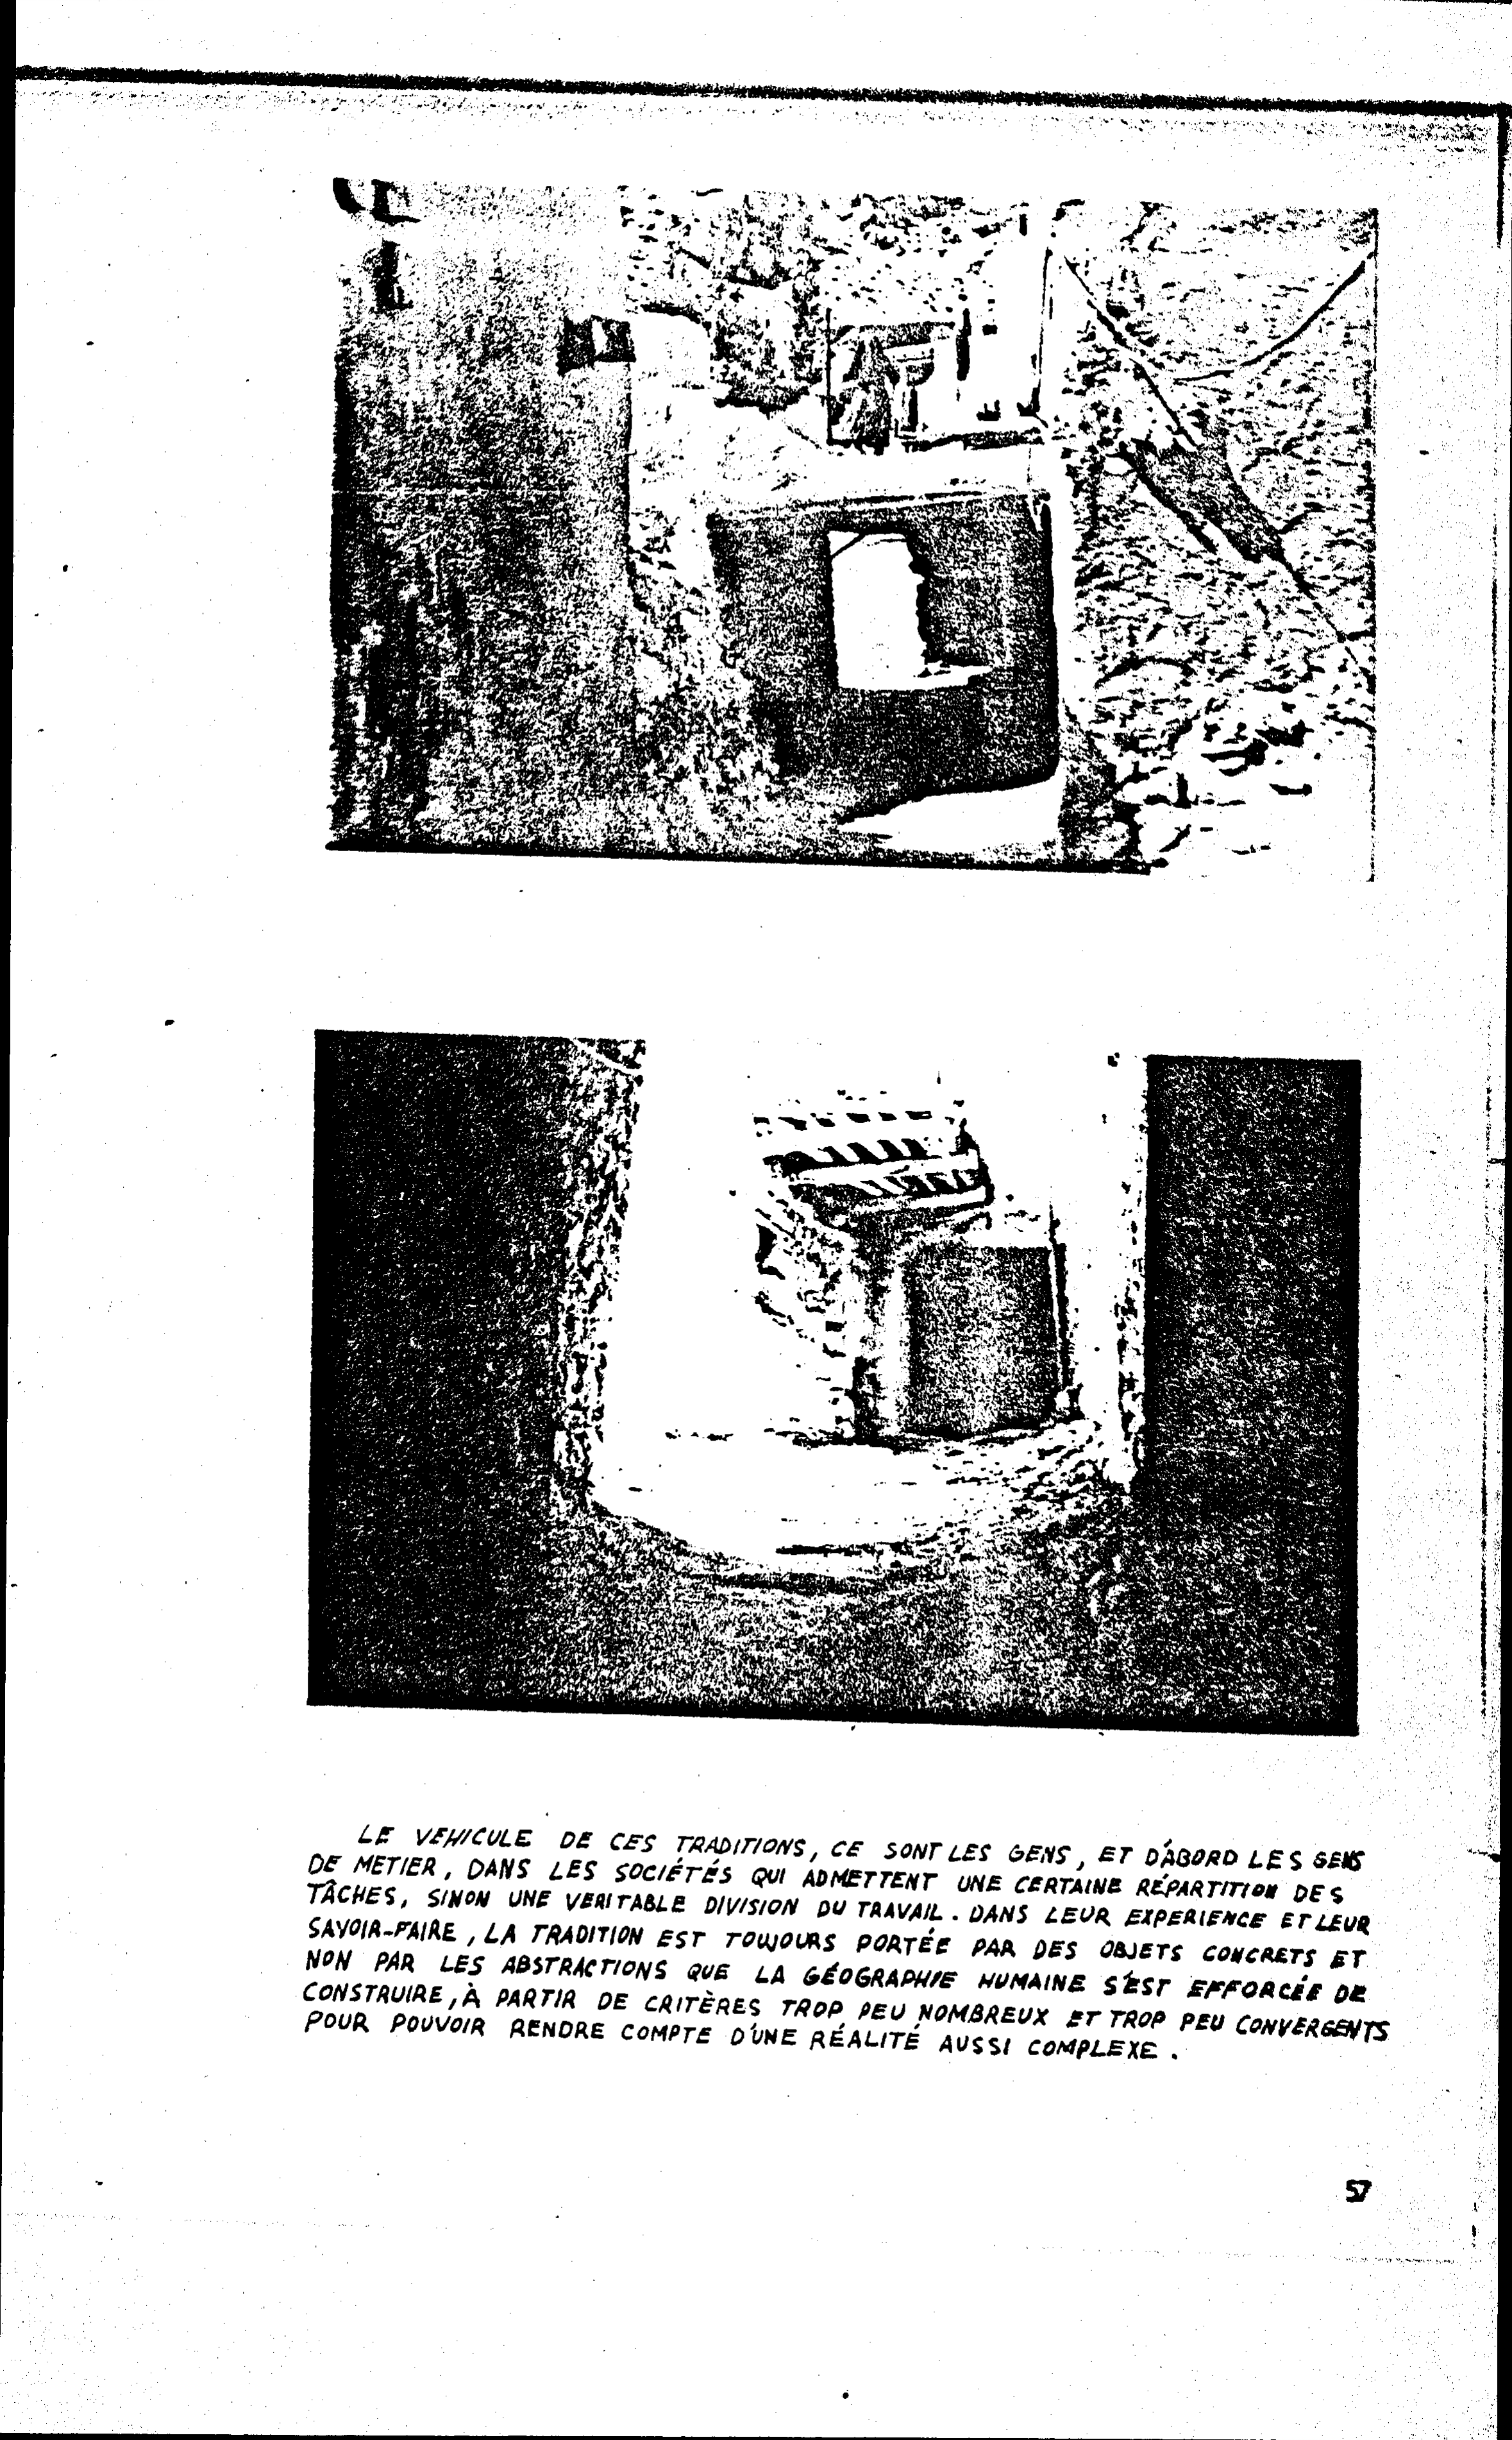 LE VEHICULE DE CES TRADITIONS, CE SONT LES GENS, ET D'ABORD LES GENS
DE METIER, DANS LES SOCIÉTÉS QUI ADMETTENT UNE CERTAINE RÉPARTITION DES
TÂCHES, SINON UNE VERITABLE DIVISION DU TRAVAIL. DANS LEUR EXPERIENCE ET LEUR
SAVOIR-FAIRE, LA TRADITION EST TOUJOURS PORTÉE PAR DES OBJETS CONCRETS ET
NON PAR LES ABSTRACTIONS QUE LA GÉOGRAPHIE HUMAINE S'EST EFFORCÉE DE
CONSTRUIRE, À PARTIR DE CRITÈRES TROP PEU NOMBREUX ET TROP PEU CONVERGENTS
POUR POUVOIR RENDRE COMPTE D'UNE RÉALITÉ AUSSI COMPLEXE.
57